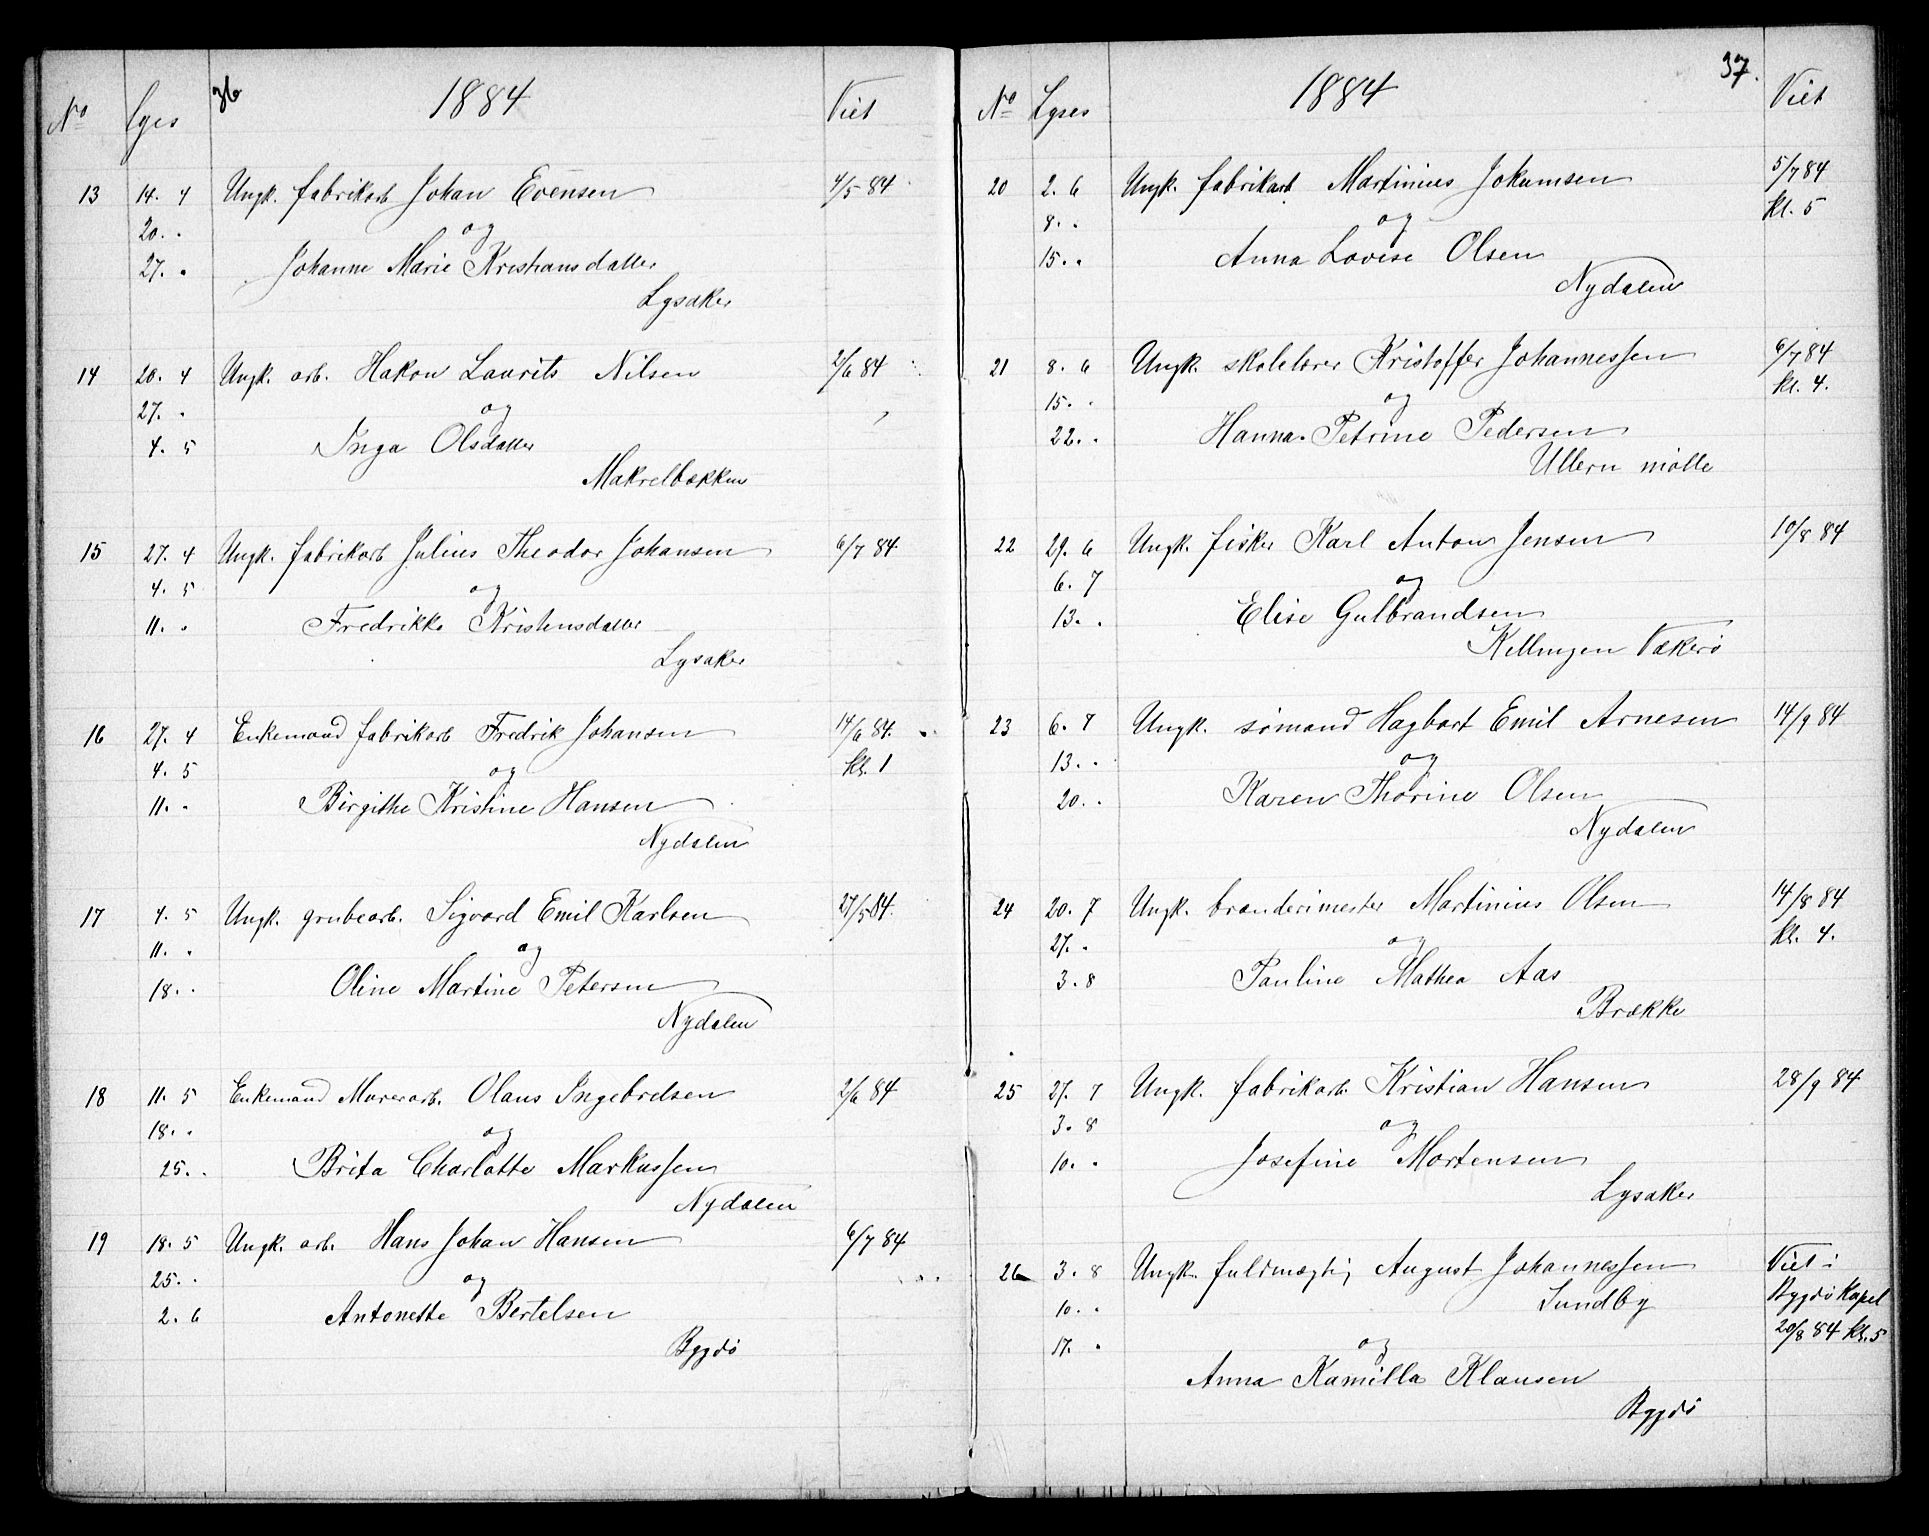 36
1884
No Lyses Viet
13 14. 4 Ungk. fabrikarb. Johan Evensen 4/5 84
20. " og
27. " Johanne Marie Kristiansdatter
Lysaker
14 20. 4 Ungk. arb. Hakon Laurits Nilsen 2/6 84
27. " og
4. 5 Inga Olsdatter
Makrelbækken
15 27. 4 Ungk. fabrikarb Julius Theodor Johansen 6/7 84.
4. 5 og
11. " Fredrikke Kristensdatter
Lysaker
16 27. 4 Enkemand fabrikarb Fredrik Johansen 14/6 84.
4. 5 og kl. 1
11. " Birgithe Kristine Hansen
Nydalen
17 4. 5 Ungk. grubearb. Sigvard Emil Karlsen 27/5 84.
11. " og
18. " Oline Martine Petersen
Nydalen
18 11. 5 Enkemand Murerarb. Olaus Ingebretsen 2/6 84
18. " og
25. " Brita Charlotte Markussen
Nydalen
19 18. 5 Ungk. arb. Hans Johan Hansen 6/7 84
25. " og
2. 6 Antonette Bertelsen
Bygdö
37.
1884
No Lyses Viet
20 2. 6 Ungk. fabrikarb. Martinius Jokumsen 5/7 84
8. " og kl. 5
15. " Anna Lovise Olsen
Nydalen
21 8. 6 Ungk. skolelærer Kristoffer Johannessen 6/7 84
15. " og kl. 4.
22. " Hanna Petrine Pedersen
Ullern mölle
22 29. 6 Ungk. fisker Karl Anton Jensen 10/8 84
6. 7 og
13. " Elise Gulbrandsen
Killingen Vækerö
23 6. 7 Ungk. sömand Hagbart Emil Arnesen 14/9 84
13. " og
20. " Karen Thorine Olsen
Nydalen
24 20. 7 Ungk. brænderimester Martinius Olsen 14/8 84
27. " og kl. 4.
3. 8 Pauline Mathea Aas
Brække
25 27. 7 Ungk. fabrikarb. Kristian Hansen 28/9 84
3. 8 og
10. " Josefine Mortensen
Lysaker
26 3. 8 Ungk. fuldmægtig August Johannessen Viet i
10. " Sundby Bygdö Kapel
17. " og 20/8 84 kl. 5
Anna Kamilla Klausen
Bygdö